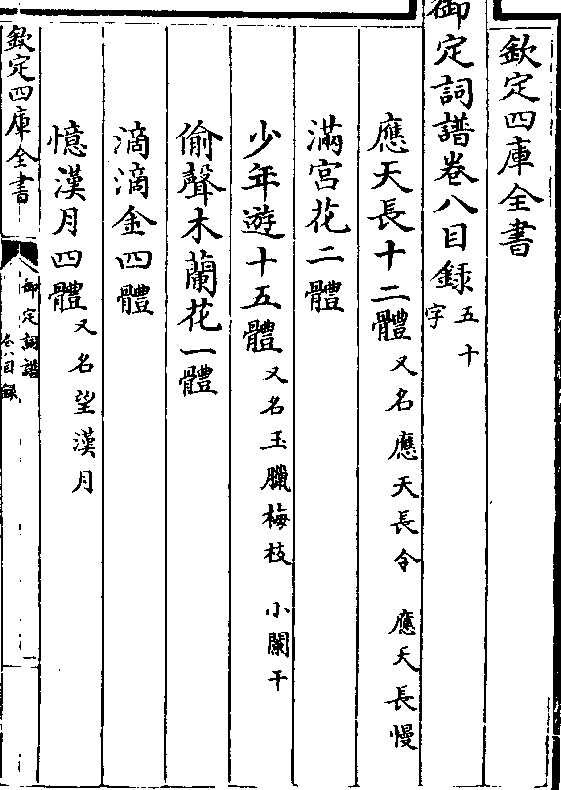 欽定四庫全書
御定詞譜卷八目錄五十字
應天長十二體又名應天長令 應天長慢
滿宮花二體
少年遊十五體又名玉臘梅枝 小闌干
偷聲木蘭花一體
滴滴金四體
憶漢月四體又名望漢月
欽定四庫全書
御定詞譜
卷八目錄
一